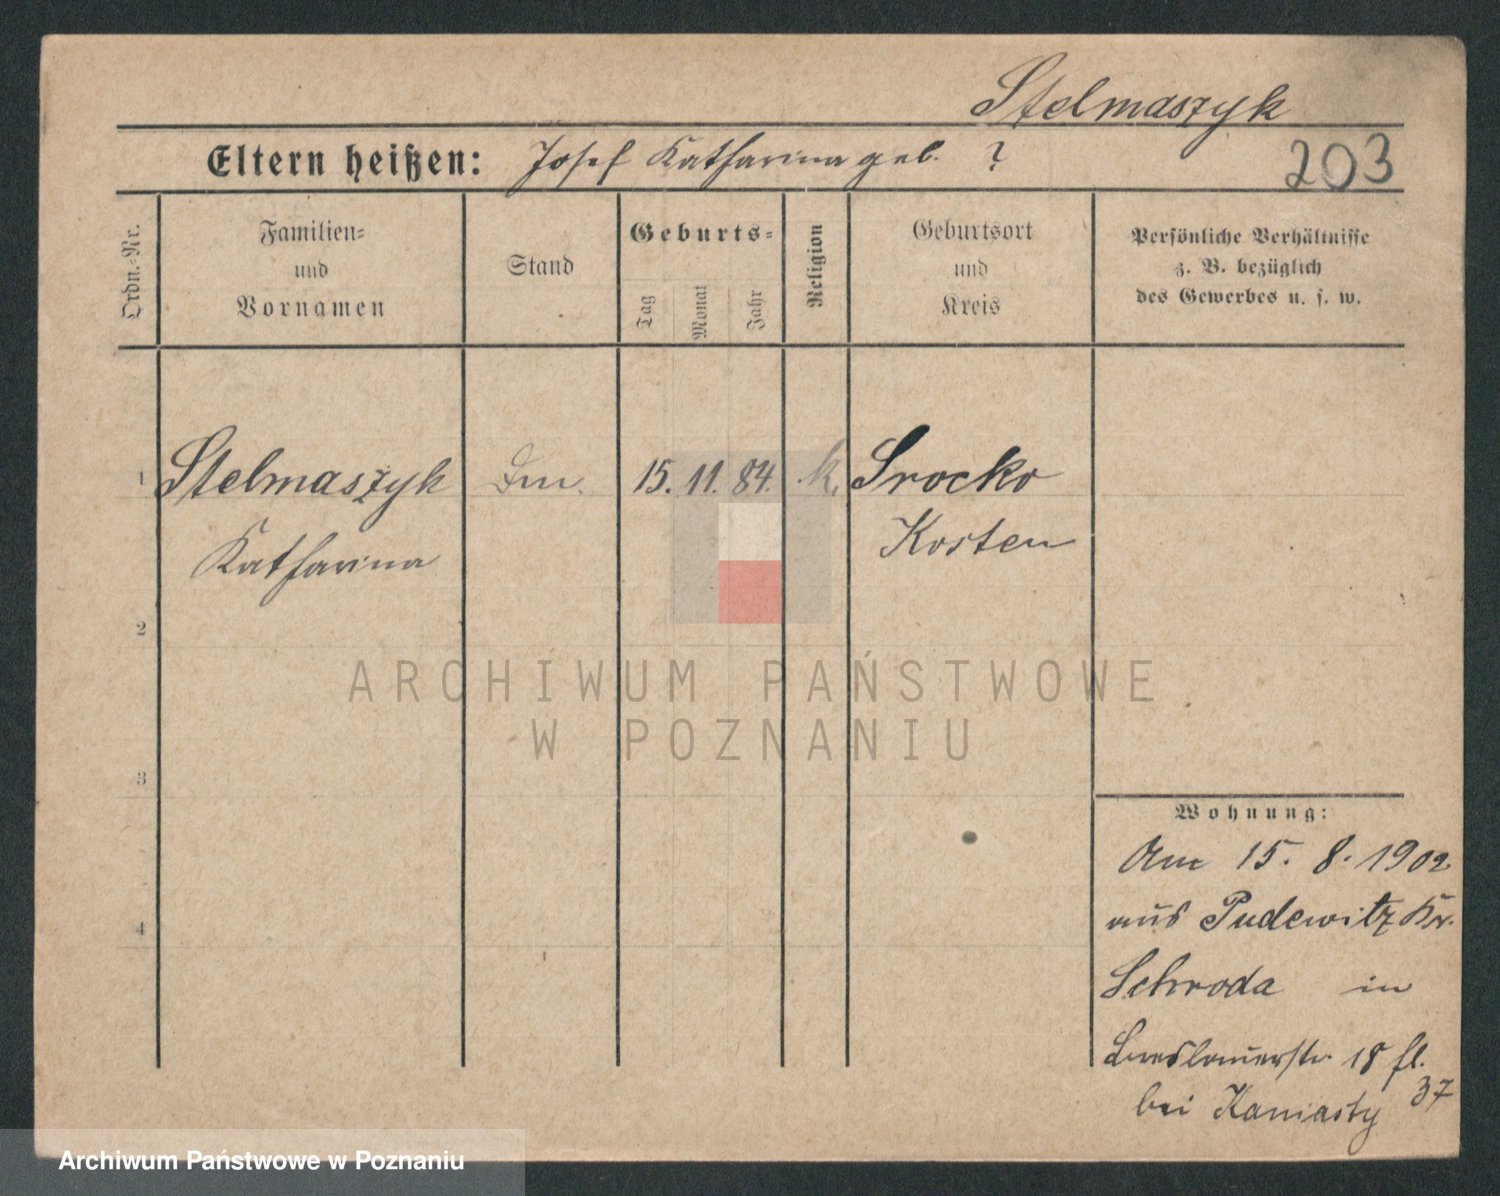 Stelmaszyk
Eltern heißen: Josef Katharina geb. ?
203
Ordn.-Nr.
Familien-
und
Vornamen
Stand
Geburts-
Tag
Monat
Jahr
Religion
Geburtsort
und
Kreis
Persönliche Verhältnisse
z. B. bezüglich
des Gewerbes u. s. w.
1 Stelmaszyk 15. 11. 84. k. Srocko
Katharina Kosten
2
ARCHIWUM PAŃSTWOWE
W POZNANIU
3
Wohnung:
Am 15. 8. 1902
4
aus Pudewitz Kr.
Schroda in
Breslauerstr. 18 fl.
bei Kaniasty 37
Archiwum Państwowe w Poznaniu